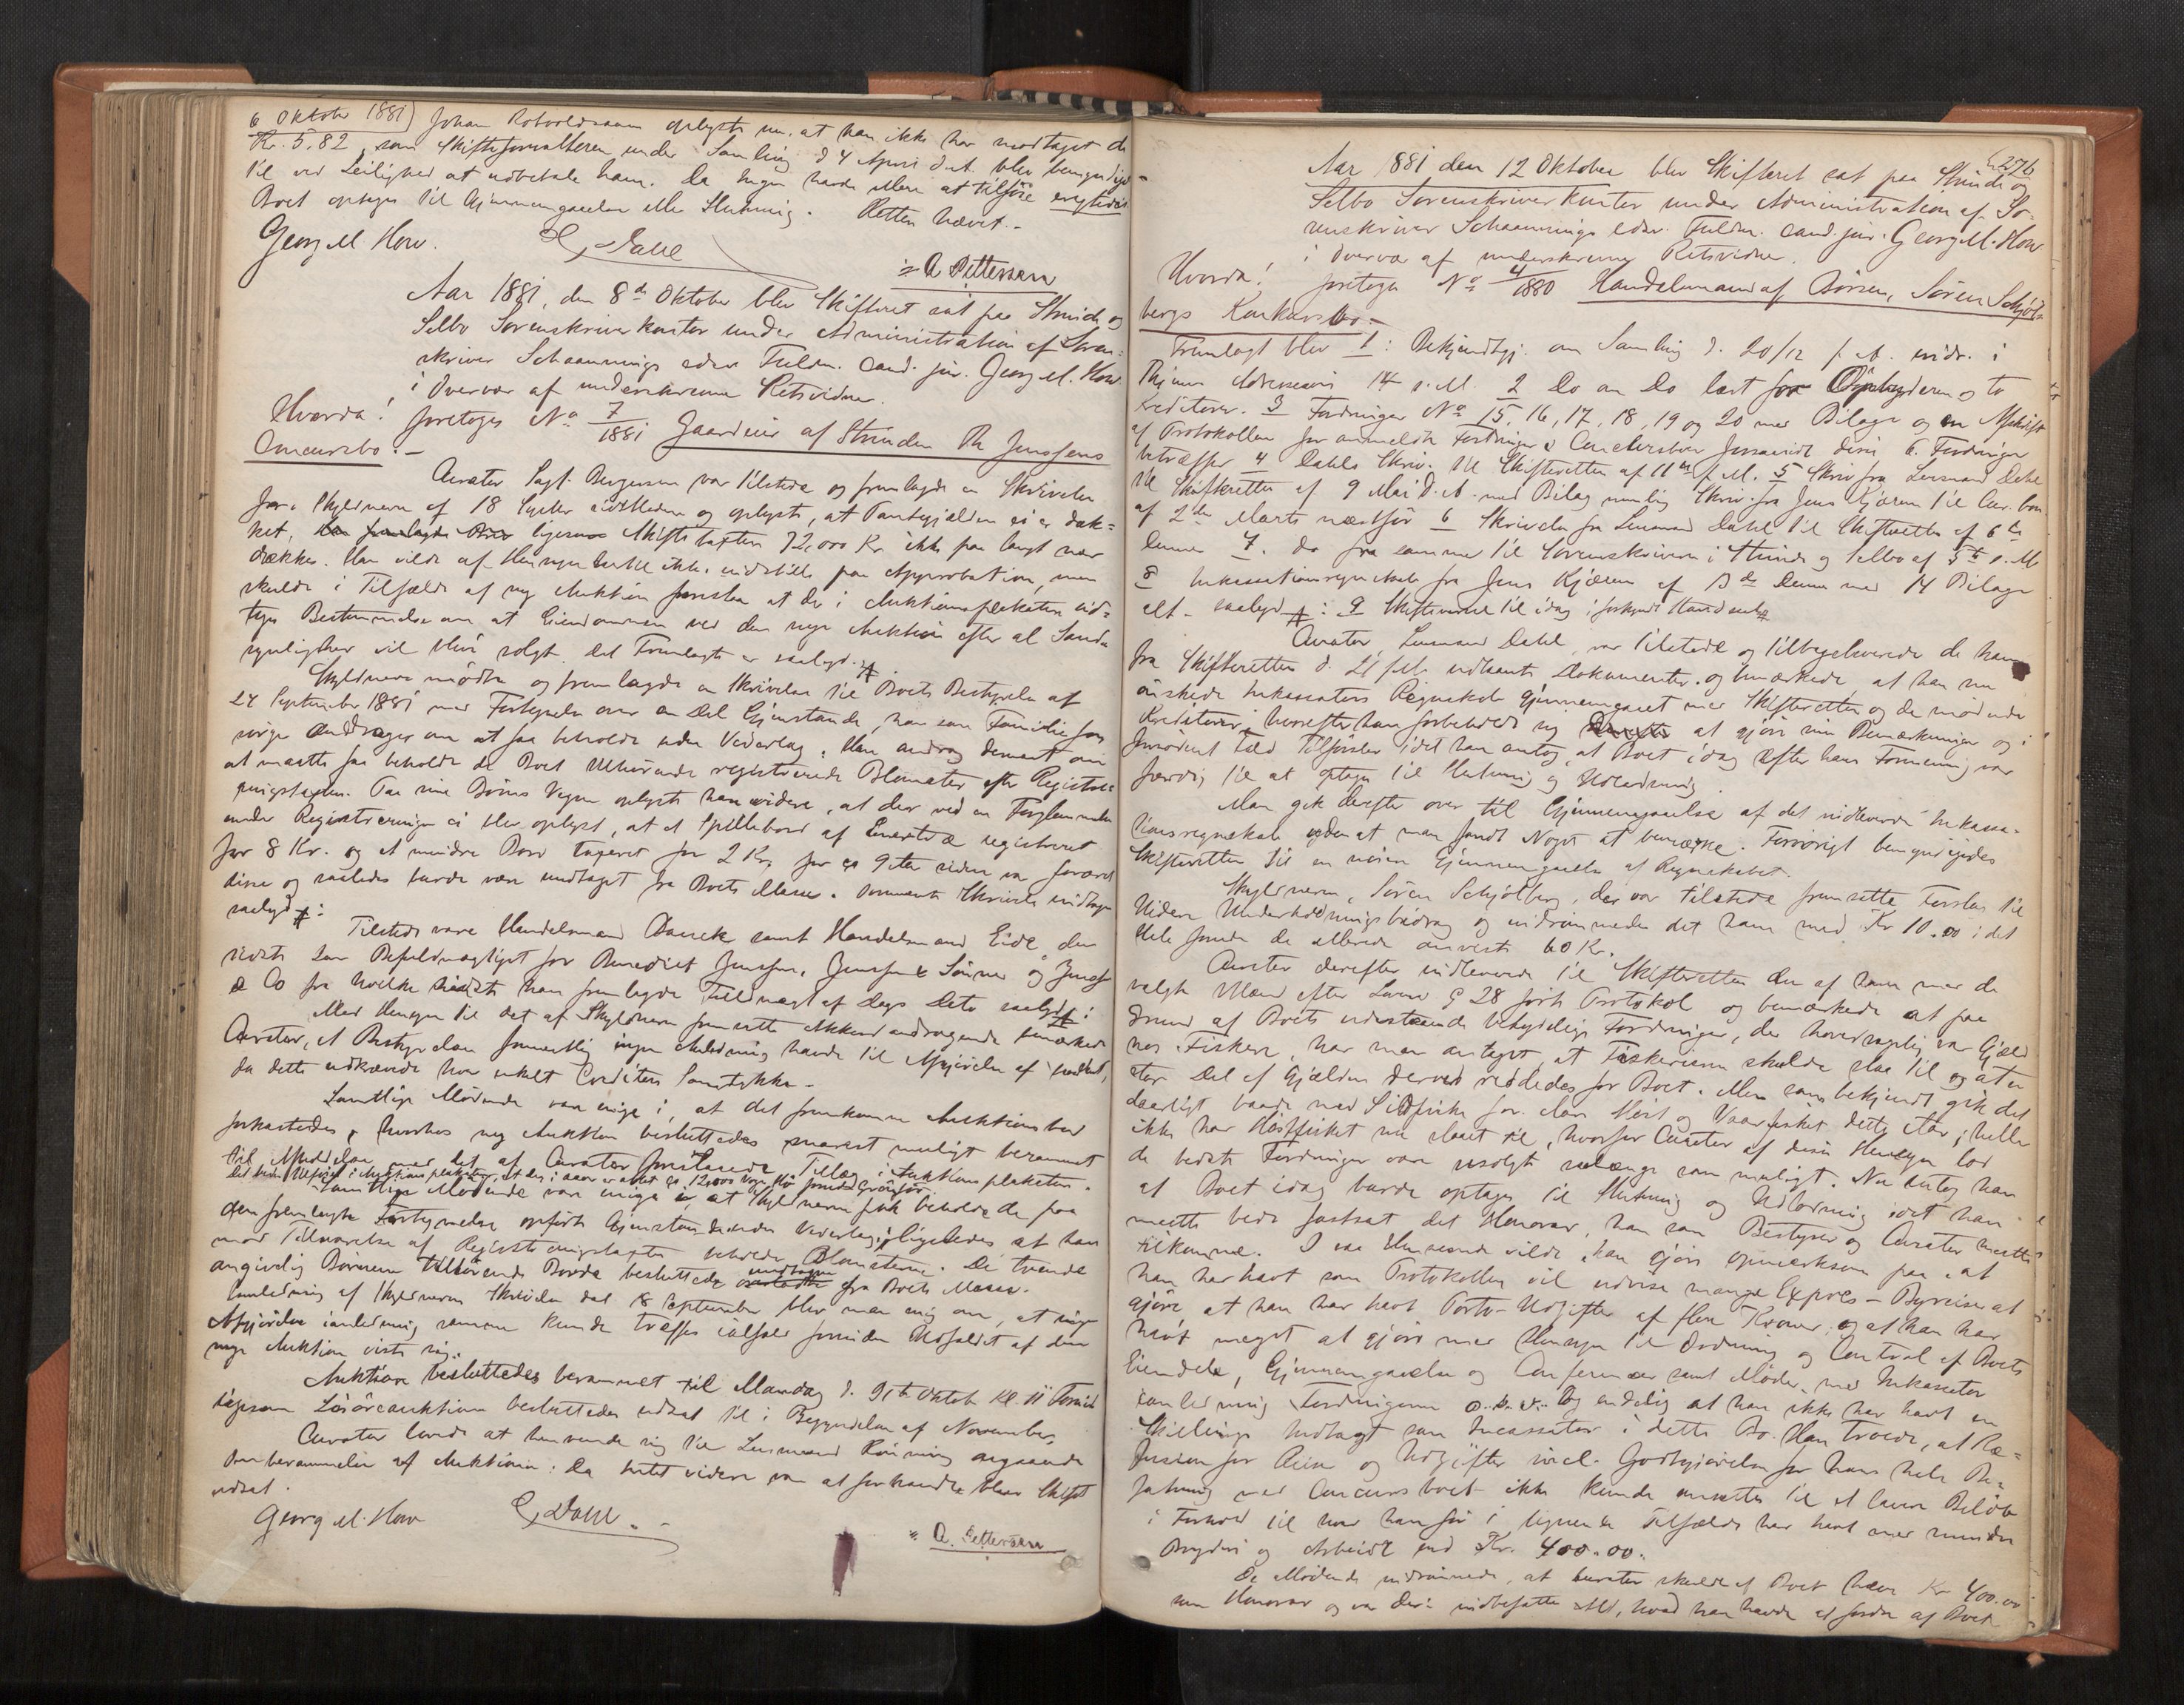 6 Oktober 1881) Johan Rotvoldsaann oplyste nu, at han ikke har modtaget de
Kr. 5,82, som Skifteforvalteren under Samling d 4 April d. A. blev bemyndiget
til ved Leilighed at udbetale ham. Da Ingen havde Mere at tilføre
Boet optages til Gjennemgaaelse eller Slutning. Retten hævet.-
Georg M. How. E. Dahl
A Pettersen
Aar 1881, den 8de Oktober blev Skifteret sat paa Strinde og
Selbo Sorenskriverkontor under Administration af Soren-
skriver Schaannings edsv. Fuldm. Cand. jur. Georg M. How
i Overvær af underskrevne Retsvidner.
Hvorda! foretoges No 7/1881 Gaardeier af Strinden Th Jenssens
Concursbo.-
Curator Sagf. Bergersen var tilstede og fremlagde en Skrivelse
fra Skyldneren af 18 Septbr sidstleden og oplyste, at Pantegjælden ei er dæk-
ket, ligesom Skiftetaxten 72,000 Kr. ikke paa langt nær
dækkes. Han vilde af Hensyn hertil ikke indstille paa Approbation, men
skulde i Tilfælde af ny Auktion foreslaa at der i Auktionsplakaten ind-
tages Bestemmelse om at Eiendommen ved den nye Auktion efter al Sand-
synlighed vil blive solgt. Det Fremlagte er saalyd.
Skyldneren mødte og fremlagde en Skrivelse til Boets Bestyrelse af
24 September 1881 med Fortegnelse over en Del Gjenstande, han som Familiefor-
sørger andrager om at faa beholde uden Vederlag. Han androg dernæst om
at maatte faa beholde de Boet tilhørende registrerede Blomster efter Registre-
ringstaxten. Paa sine Børns Vegne oplyste han videre, at der ved en Forglemmelse
under Registreringen ei blev oplyst, at et Spillebord af registreret
for 8 Kr. og et mindre Bord taxeret for 2 Kr. for ca 9 Aar siden var foræret
disse og saaledes burde være undtaget fra Boets Masse. Skrivelse indtages
saalyd:
Tilstede vare Handelsmand samt Handelsmand Eide, den
sidste som Befuldmægtiget for Benedict Jenssen, Jenssen & Sønner og
& Co fra hvilke sidste han fremlagde Fuldmagt af Dags Dato saalyd:
Med Hensyn til det af Skyldneren fremsatte Akkordandragende bemærkede
Curator, at Bestyrelsen formentlig ingen Anledning havde til Afgjørelse af samme,
da dette udkrævede hver enkelt Creditors Samtykke.-
Samtlige Mødende vare enige i, at det fremkomne Auktionsbud
forkastedes, hvorhos ny Auktion besluttedes snarest muligt berammet
til Afholdelse med det af Curator foreslaaede Tillæg i Auktionsplakaten.
Samtlige Mødende vare enige i, at Skyldneren fik beholde de paa
den fremlagte Fortegnelse opførte Gjenstande uden Vederlag; ligeledes at han
mod Tilsvarelse af Registreringstaxten beholder Blomsterne. De tvende
angivelig Børnene tilhørende Borde besluttedes undtagne fra Boets Masse.
I Anledning af Skyldnerens Skrivelse dat 18 September blev man enig om, at ingen
Afgjørelse i Anledning samme kunde træffes ialfald forinden Udfaldet af den
nye Auktion viste sig.
Auktion besluttedes berammet til Mandag d. 31te Oktob. Kl. 11 Formid
ligesom Løsøreauktion besluttedes udsat til i Begyndelsen af November.
Curator lovede at henvende sig til Lensmand Rønning angaaende
berammelse af Auktionen. Da Intet videre var at forhandle blev Skiftet
udsat.
Georg M. How E. Dahl.-
A. Pettersen
276
Aar 1881 den 12 Oktober blev Skifteret sat paa Strinde og
Selbo Sorenskriverkontor under Administration af So-
renskriver Schaannings edsv. Fuldm. cand. jur. Georg M. How
i Overvær af underskrevne Retsvidner.
Hvorda! foretoges No 4/1880 Handelsmand af Børsen, Søren Schjøl-
bergs Konkursbo.-
Fremlagt blev 1: Bekjendtgj. om Samling d. 20/12 f. A. indr. i
Thjems Adresseavis 14 s. M. 2 Do om Do læst for Opbyderen og to
Kreditorer. 3 Fordringer No 15, 16, 17, 18, 19 og 20 med Bilage og en Afskrift
af Protokollen for anmeldte Fordringer disse 6 Fordringer
betræffer 4 Dahls Skriv. til Skifteretten af 11te f. M. 5 Skriv fra Lensmand Dahl
til Skifteretten af 9 Mai d. A. med Bilag nemlig Skriv. fra Jens Kjærem til Cur. bon.
af 2den Marts næstfør 6 Skrivelse fra Lensmand Dahl til Skifteretten af 6te
dennes 7. do fra samme til Sorenskriveren i Strinde og Selbo af 5te s. M
8 Inkassationsregnskab fra Jens Kjærem af 13de dennes med 14 Bilage
alt saalyd: 9 Skiftevarsel til idag i forkyndt Stand
Curator, Lensmand Dahl, var tilstede og tilbageleverede de ham
fra Skifteretten d. 21 febr. udlaante Dokumenter og bemærkede at han nu
ønskede Inkassators Regnskab gjennemgaaet med Skifteretten og de mødende
Kreditorer, hvorefter han forbeholdt sig at gjøre sine Bemærkninger og i
fornødent Fald Tilførsler idet han antog, at Boet idag efter hans Formening var
færdig til at optages til Slutning og Udlodning.
Man gik derefter over til Gjennemgaaelse af det indleverede Inkassa-
tionsregnskab uden at man fandt Noget at bemærke. Forøvrigt bemyndigedes
Skifteretten til en nøiere Gjennemgaaelse af Regnskabet.
Skyldneren, Søren Schjølberg, der var tilstede fremsatte Forslag til
videre Underholdningsbidrag og indrømmedes det ham med Kr 10.00 idet
hele foruden de allerede anviste 60 Kr.
Curator derefter indleverede til Skifteretten den af ham med de
valgte Mænd efter Lovens § 28 førte Protokol og bemærkede at paa
Grund af Boets udestaaende betydelige Fordringer, der hovedsagelig var Gjæld
hos Fiskere, har man antaget, at Fiskerierne skulde slaa til og at en
stor Del af Gjælden derved reddedes for Boet. Men som bekjendt gik det
daarligt baade med Sildfiske for. Aars Høst og Vaarfisket dette Aar; heller
ikke har Høstfisket nu slaaet til, hvorfor Curator af disse Hensyn lod
de bedste Fordringer være usolgte saalænge som muligt. Nu antog han
at Boet idag burde optages til Slutning og Udlodning idet han
maatte bede fastsat det Honorar, han som Bestyrer og Curator maatte
tilkomme. I saa Henseende vilde han gjøre opmærksom paa, at
han har havt som Protokollen vil udvise mange Expres-Byreiser at
gjøre, at han har havt Porto-Udgifter af flere Kroner; og at han har
havt meget at gjøre med Hensyn til Ordning og Control af Boets
Eiendele, Gjennemgaaelse og Conferencer samt Møder med Inkassator
i Anledning Fordringerne o. s. v. Og endelig at han ikke har havt en
Skillings Indtægt som Incassator i dette Bo. Han troede, at Re-
fusion for Reise og Udgifter incl. Godtgjørelse for hans hele Be-
fatning med Concursboet ikke kunde ansættes til et lavere Beløb
i Forhold til hvad han før i lignende Tilfælde har havt med mindre
Bryderi og Arbeide end Kr. 400.00.
De Mødende indrømmede, at Curator skulde af Boet have Kr 400.00
som Honorar og var deri indbefattet Alt, hvad han havde at fordre af Boet